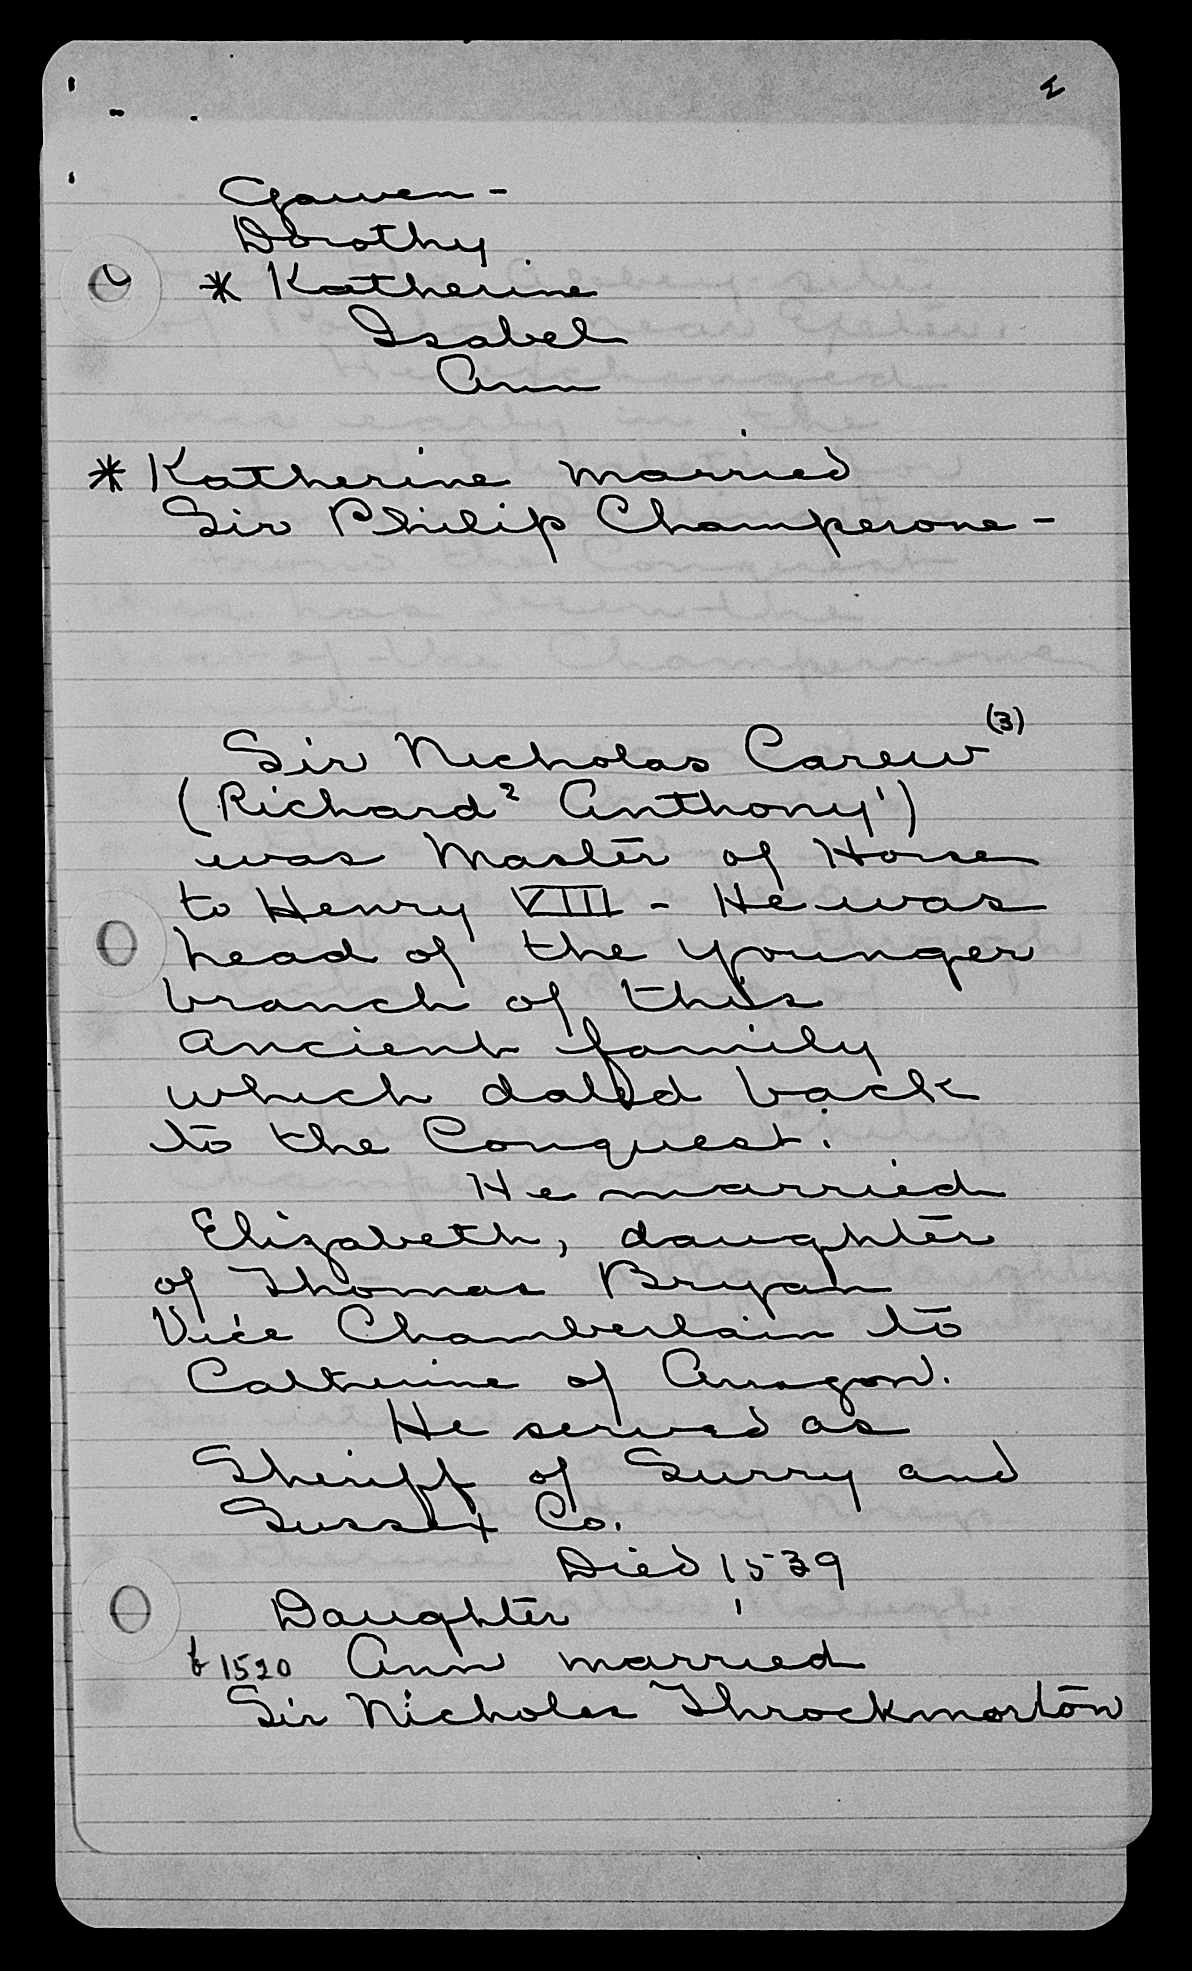 Gawen -
Dorothy
* Katherine
Isabel
Ann
* Katherine married
Sir Philip Champerone -
Sir Nicholas Carew (3)
(Richard² Anthony¹)
was Master of Horse
to Henry VIII - He was
head of the younger
branch of this
ancient family
which dated back
to the Conquest.
He married
Elizabeth, daughter
of Thomas Bryan
Vice Chamberlain to
Catherine of Aragon.
He served as
Sheriff of Surry and
Sussex Co.
Died 1539
Daughter
b 1520 Ann married
Sir Nicholas Throckmorton